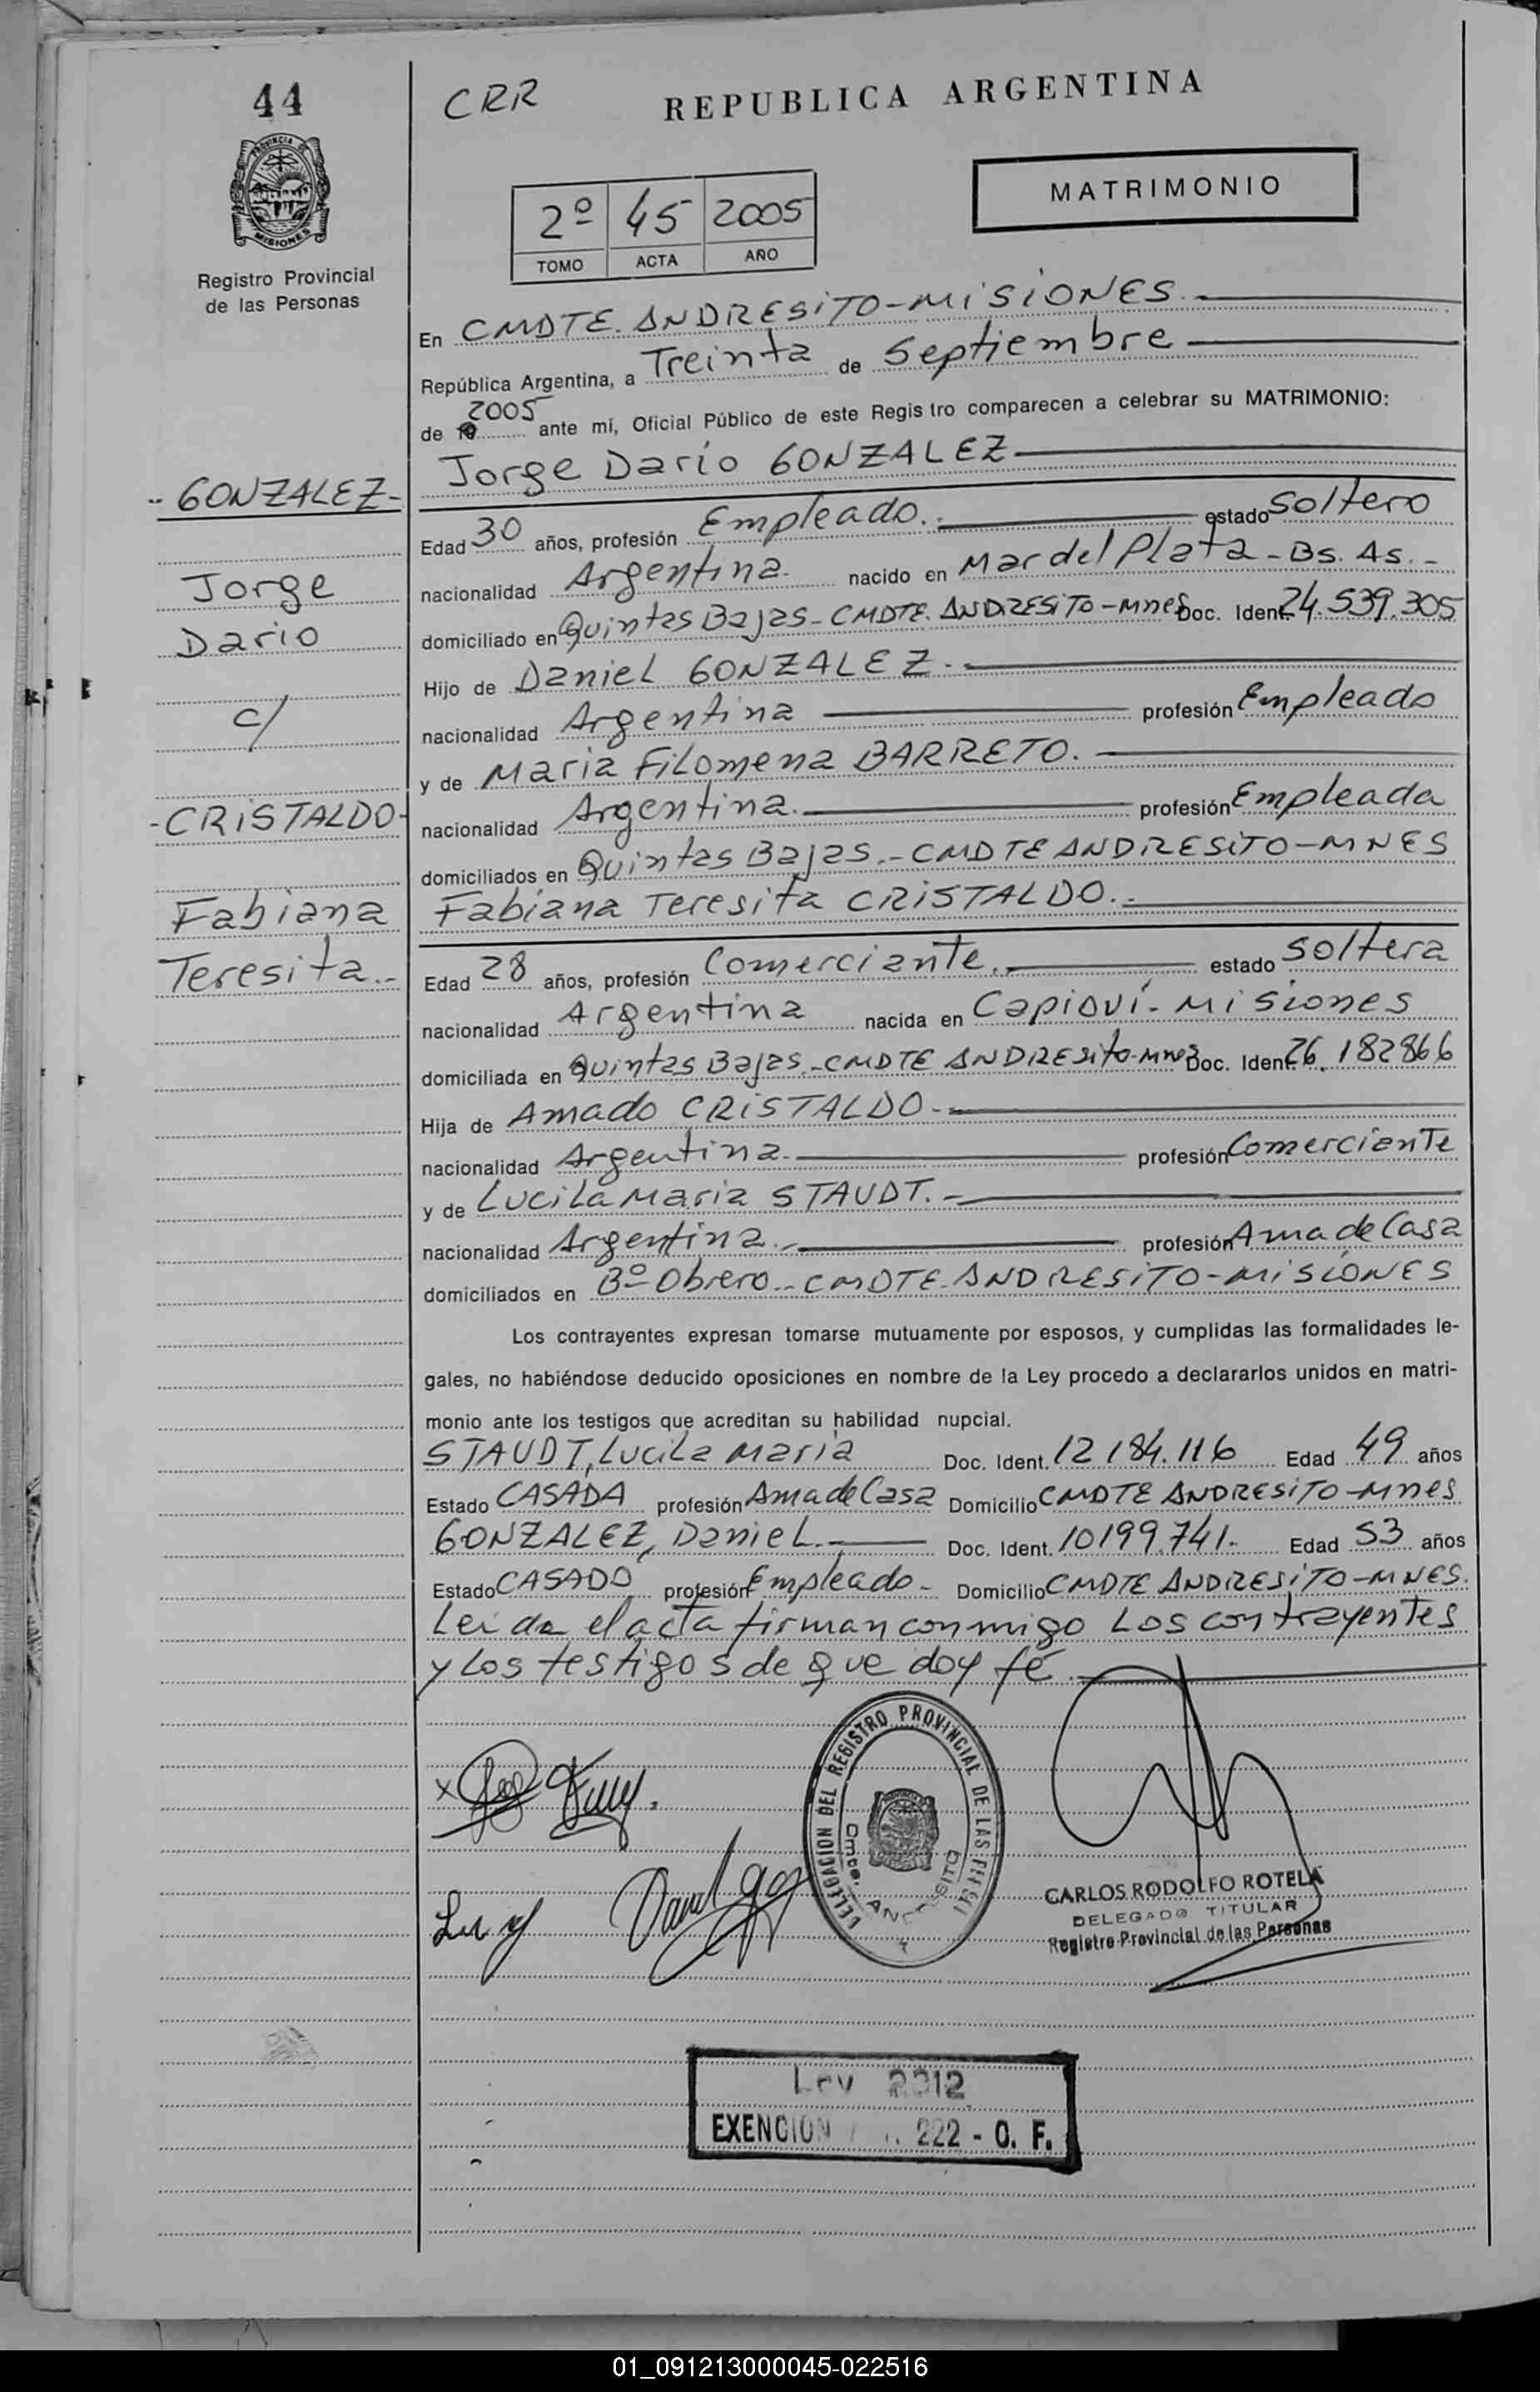 44
CRR
REPUBLICA ARGENTINA
PROVINCIA DE
MISIONES
Registro Provincial
de las Personas
MATRIMONIO
2º 45 2005
TOMO ACTA AÑO
En CMDTE. ANDRESITO-MISIONES.
República Argentina, a Treinta de Septiembre
de 2005 ante mí, Oficial Público de este Regis tro comparecen a celebrar su MATRIMONIO:
Jorge Dario GONZALEZ
-- GONZALEZ-
Edad 30 años, profesión Empleado. estado Soltero
Jorge
nacionalidad Argentina. nacido en Mar del Plata - Bs. As. -
Dario
domiciliado en Quintas Bajas - CMDTE. ANDRESITO - Mnes Doc. Ident. 24.539.305
Hijo de Daniel GONZALEZ.
c/
nacionalidad Argentina profesión Empleado
y de Maria Filomena BARRETO.
-CRISTALDO-
nacionalidad Argentina. profesión Empleada
domiciliados en Quintas Bajas.- CMDTE ANDRESITO - MNES
Fabiana
Fabiana Teresita CRISTALDO.-
Teresita.-
Edad 28 años, profesión Comerciante. estado Soltera
nacionalidad Argentina nacida en Capioví - Misiones
domiciliada en Quintas Bajas.-CMDTE ANDRESito-Mnes Doc. Ident. 26.182866
Hija de Amado CRISTALDO.-
nacionalidad Argentina. profesión Comerciante
y de Lucila Maria STAUDT.-
nacionalidad Argentina.- profesión Ama de Casa
domiciliados en Bº Obrero.- CMDTE. ANDRESITO-MISIONES
Los contrayentes expresan tomarse mutuamente por esposos, y cumplidas las formalidades le-
gales, no habiéndose deducido oposiciones en nombre de la Ley procedo a declararlos unidos en matri-
monio ante los testigos que acreditan su habilidad nupcial.
STAUDT, Lucila Maria Doc. Ident. 12.184.116 Edad 49 años
Estado CASADA profesión Ama de Casa Domicilio CMDTE ANDRESITO-Mnes
GONZALEZ, Daniel. Doc. Ident. 10199.741. Edad 53 años
Estado CASADO profesión Empleado- Domicilio CMDTE ANDRESITO-MNES.
Leida el acta firman conmigo Los contrayentes
y Los testigos de que doy fé.
DELEGACION DEL REGISTRO PROVINCIAL DE LAS
Cmte. ANDRESITO
CARLOS RODOLFO ROTELA
DELEGADO TITULAR
Registro Provincial de las Personas
Ley 2312
EXENCION 222 - O. F.
01_091213000045-022516